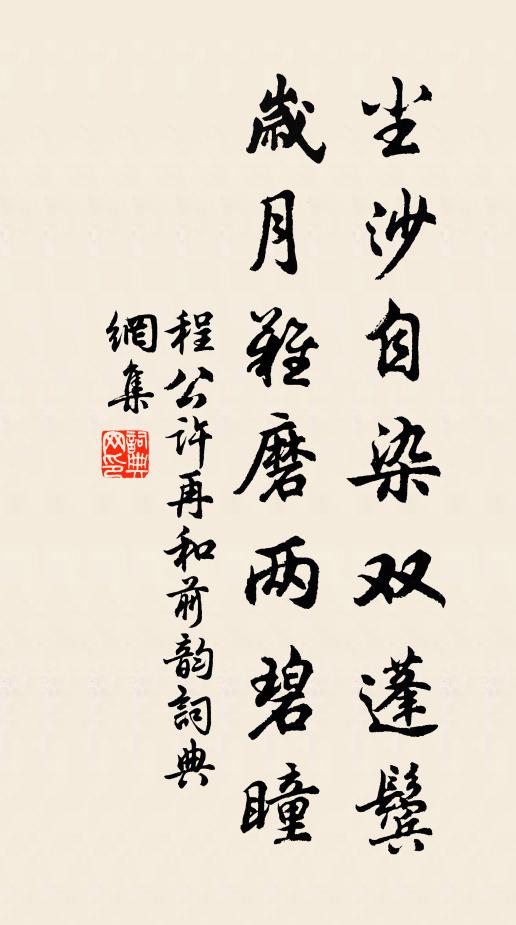 尘沙自染双蓬鬓
岁月难磨两碧瞳
程公许再和前韵詞典
網集
詞典
网印